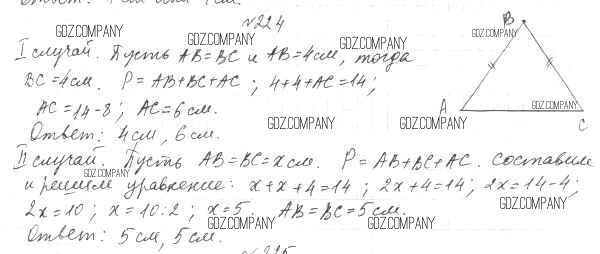 №224
I случай. Пусть AB=BC и AB=4см, тогда
BC=4см. P=AB+BC+AC; 4+4+AC=14;
AC=14-8; AC=6см.
Ответ: 4см, 6см.
II случай. Пусть AB=BC=xсм. P=AB+BC+AC. Составим
и решим уравнение: x+x+4=14; 2x+4=14; 2x=14-4;
2x=10; x=10:2; x=5. AB=BC=5см.
Ответ: 5см, 5см.
B
A
C
GDZ.COMPANY
GDZ.COMPANY
GDZ.COMPANY
GDZ.COMPANY
GDZ.COMPANY
GDZ.COMPANY
GDZ.COMPANY
GDZ.COMPANY
GDZ.COMPANY
GDZ.COMPANY
GDZ.COMPANY